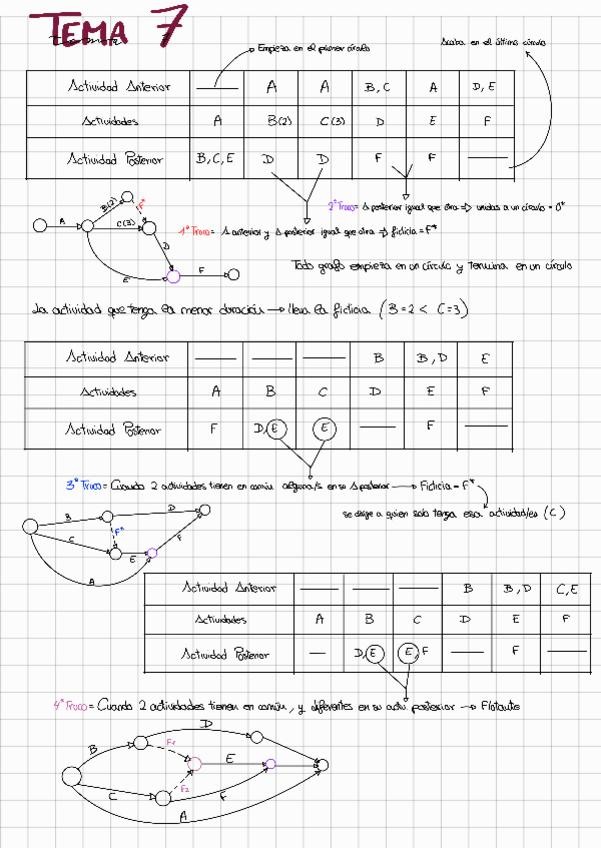 TEMA 7
Empieza en el primer círculo
Acaba en el último círculo
Actividad Anterior — A A B,C A D,E
Actividades A B(2) C(3) D E F
Actividad Posterior B,C,E D D F F —
A B(2) F* C(3) D E F
2º Truco = A posterior igual que otra => unidas a un círculo = O*
1º Truco = A anterior y A posterior igual que otra => ficticia = F*
Todo grafo empieza en un círculo y termina en un círculo
La actividad que tenga la menor duración → lleva la ficticia (B=2 < C=3)
Actividad Anterior — — — B B,D E
Actividades A B C D E F
Actividad Posterior F D,E E — F —
3º Truco = Cuando 2 actividades tienen en común alguna/s en su A posterior → Ficticia = F*
se dirige a quien solo tenga esa actividad/es (C)
B D C F* E F A
Actividad Anterior — — — B B,D C,E
Actividades A B C D E F
Actividad Posterior — D,E E,F — F —
4º Truco = Cuando 2 actividades tienen en común, y diferentes en su activ posterior → Flotante
D B F1 E F2 C F A